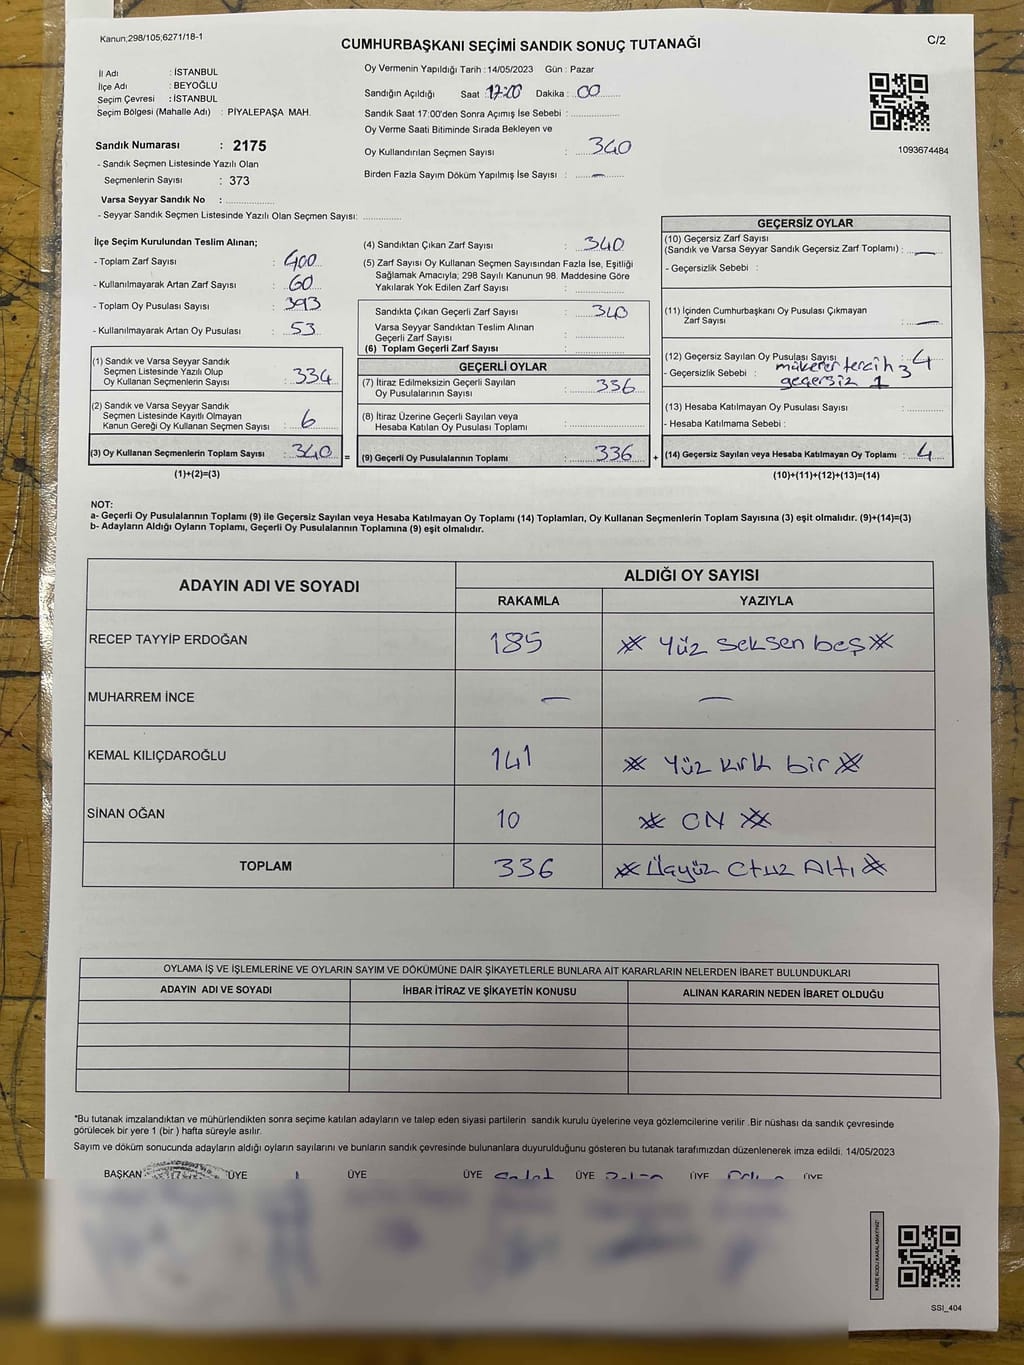 Kanun;298/105;6271/18-1
CUMHURBAŞKANI SEÇİMİ SANDIK SONUÇ TUTANAĞI
C/2
İl Adı : İSTANBUL
İlçe Adı : BEYOĞLU
Seçim Çevresi : İSTANBUL
Seçim Bölgesi (Mahalle Adı) : PİYALEPAŞA MAH.
Sandık Numarası : 2175
- Sandık Seçmen Listesinde Yazılı Olan
Seçmenlerin Sayısı : 373
Varsa Seyyar Sandık No :
- Seyyar Sandık Seçmen Listesinde Yazılı Olan Seçmen Sayısı:
Oy Vermenin Yapıldığı Tarih : 14/05/2023 Gün : Pazar
Sandığın Açıldığı Saat : 17:00 Dakika : 00
Sandık Saat 17:00'den Sonra Açımış İse Sebebi :
Oy Verme Saati Bitiminde Sırada Bekleyen ve
Oy Kullandırılan Seçmen Sayısı : 340
Birden Fazla Sayım Döküm Yapılmış İse Sayısı : —
1093674484
İlçe Seçim Kurulundan Teslim Alınan;
- Toplam Zarf Sayısı : 400
- Kullanılmayarak Artan Zarf Sayısı : 60
- Toplam Oy Pusulası Sayısı : 393
- Kullanılmayarak Artan Oy Pusulası : 53
(1) Sandık ve Varsa Seyyar Sandık
Seçmen Listesinde Yazılı Olup
Oy Kullanan Seçmenlerin Sayısı : 334
(2) Sandık ve Varsa Seyyar Sandık
Seçmen Listesinde Kayıtlı Olmayan
Kanun Gereği Oy Kullanan Seçmen Sayısı : 6
(3) Oy Kullanan Seçmenlerin Toplam Sayısı : 340 =
(1)+(2)=(3)
(4) Sandıktan Çıkan Zarf Sayısı : 340
(5) Zarf Sayısı Oy Kullanan Seçmen Sayısından Fazla İse, Eşitliği
Sağlamak Amacıyla; 298 Sayılı Kanunun 98. Maddesine Göre
Yakılarak Yok Edilen Zarf Sayısı :
Sandıkta Çıkan Geçerli Zarf Sayısı : 340
Varsa Seyyar Sandıktan Teslim Alınan
Geçerli Zarf Sayısı :
(6) Toplam Geçerli Zarf Sayısı :
GEÇERLİ OYLAR
(7) İtiraz Edilmeksizin Geçerli Sayılan
Oy Pusulalarının Sayısı : 336
(8) İtiraz Üzerine Geçerli Sayılan veya
Hesaba Katılan Oy Pusulası Toplamı :
(9) Geçerli Oy Pusulalarının Toplamı : 336 +
GEÇERSİZ OYLAR
(10) Geçersiz Zarf Sayısı
(Sandık ve Varsa Seyyar Sandık Geçersiz Zarf Toplamı) : —
- Geçersizlik Sebebi :
(11) İçinden Cumhurbaşkanı Oy Pusulası Çıkmayan
Zarf Sayısı : —
(12) Geçersiz Sayılan Oy Pusulası Sayısı : 4
- Geçersizlik Sebebi : mükerer tercih 3
geçersiz 1
(13) Hesaba Katılmayan Oy Pusulası Sayısı :
- Hesaba Katılmama Sebebi :
(14) Geçersiz Sayılan veya Hesaba Katılmayan Oy Toplamı : 4
(10)+(11)+(12)+(13)=(14)
NOT:
a- Geçerli Oy Pusulalarının Toplamı (9) ile Geçersiz Sayılan veya Hesaba Katılmayan Oy Toplamı (14) Toplamları, Oy Kullanan Seçmenlerin Toplam Sayısına (3) eşit olmalıdır. (9)+(14)=(3)
b- Adayların Aldığı Oyların Toplamı, Geçerli Oy Pusulalarının Toplamına (9) eşit olmalıdır.
ADAYIN ADI VE SOYADI
ALDIĞI OY SAYISI
RAKAMLA YAZIYLA
RECEP TAYYİP ERDOĞAN 185 Yüz seksen beş
MUHARREM İNCE — —
KEMAL KILIÇDAROĞLU 141 Yüz kırk bir
SİNAN OĞAN 10 ON
TOPLAM 336 Üçyüz Otuz Altı
OYLAMA İŞ VE İŞLEMLERİNE VE OYLARIN SAYIM VE DÖKÜMÜNE DAİR ŞİKAYETLERLE BUNLARA AİT KARARLARIN NELERDEN İBARET BULUNDUKLARI
ADAYIN ADI VE SOYADI İHBAR İTİRAZ VE ŞİKAYETİN KONUSU ALINAN KARARIN NEDEN İBARET OLDUĞU
*Bu tutanak imzalandıktan ve mühürlendikten sonra seçime katılan adayların ve talep eden siyasi partilerin sandık kurulu üyelerine veya gözlemcilerine verilir .Bir nüshası da sandık çevresinde
görülecek bir yere 1 (bir ) hafta süreyle asılır.
Sayım ve döküm sonucunda adayların aldığı oyların sayılarını ve bunların sandık çevresinde bulunanlara duyurulduğunu gösteren bu tutanak tarafımızdan düzenlenerek imza edildi. 14/05/2023
BAŞKAN ÜYE ÜYE ÜYE ÜYE ÜYE ÜYE
KARE KODU KARALAMAYINIZ!
SSI_404